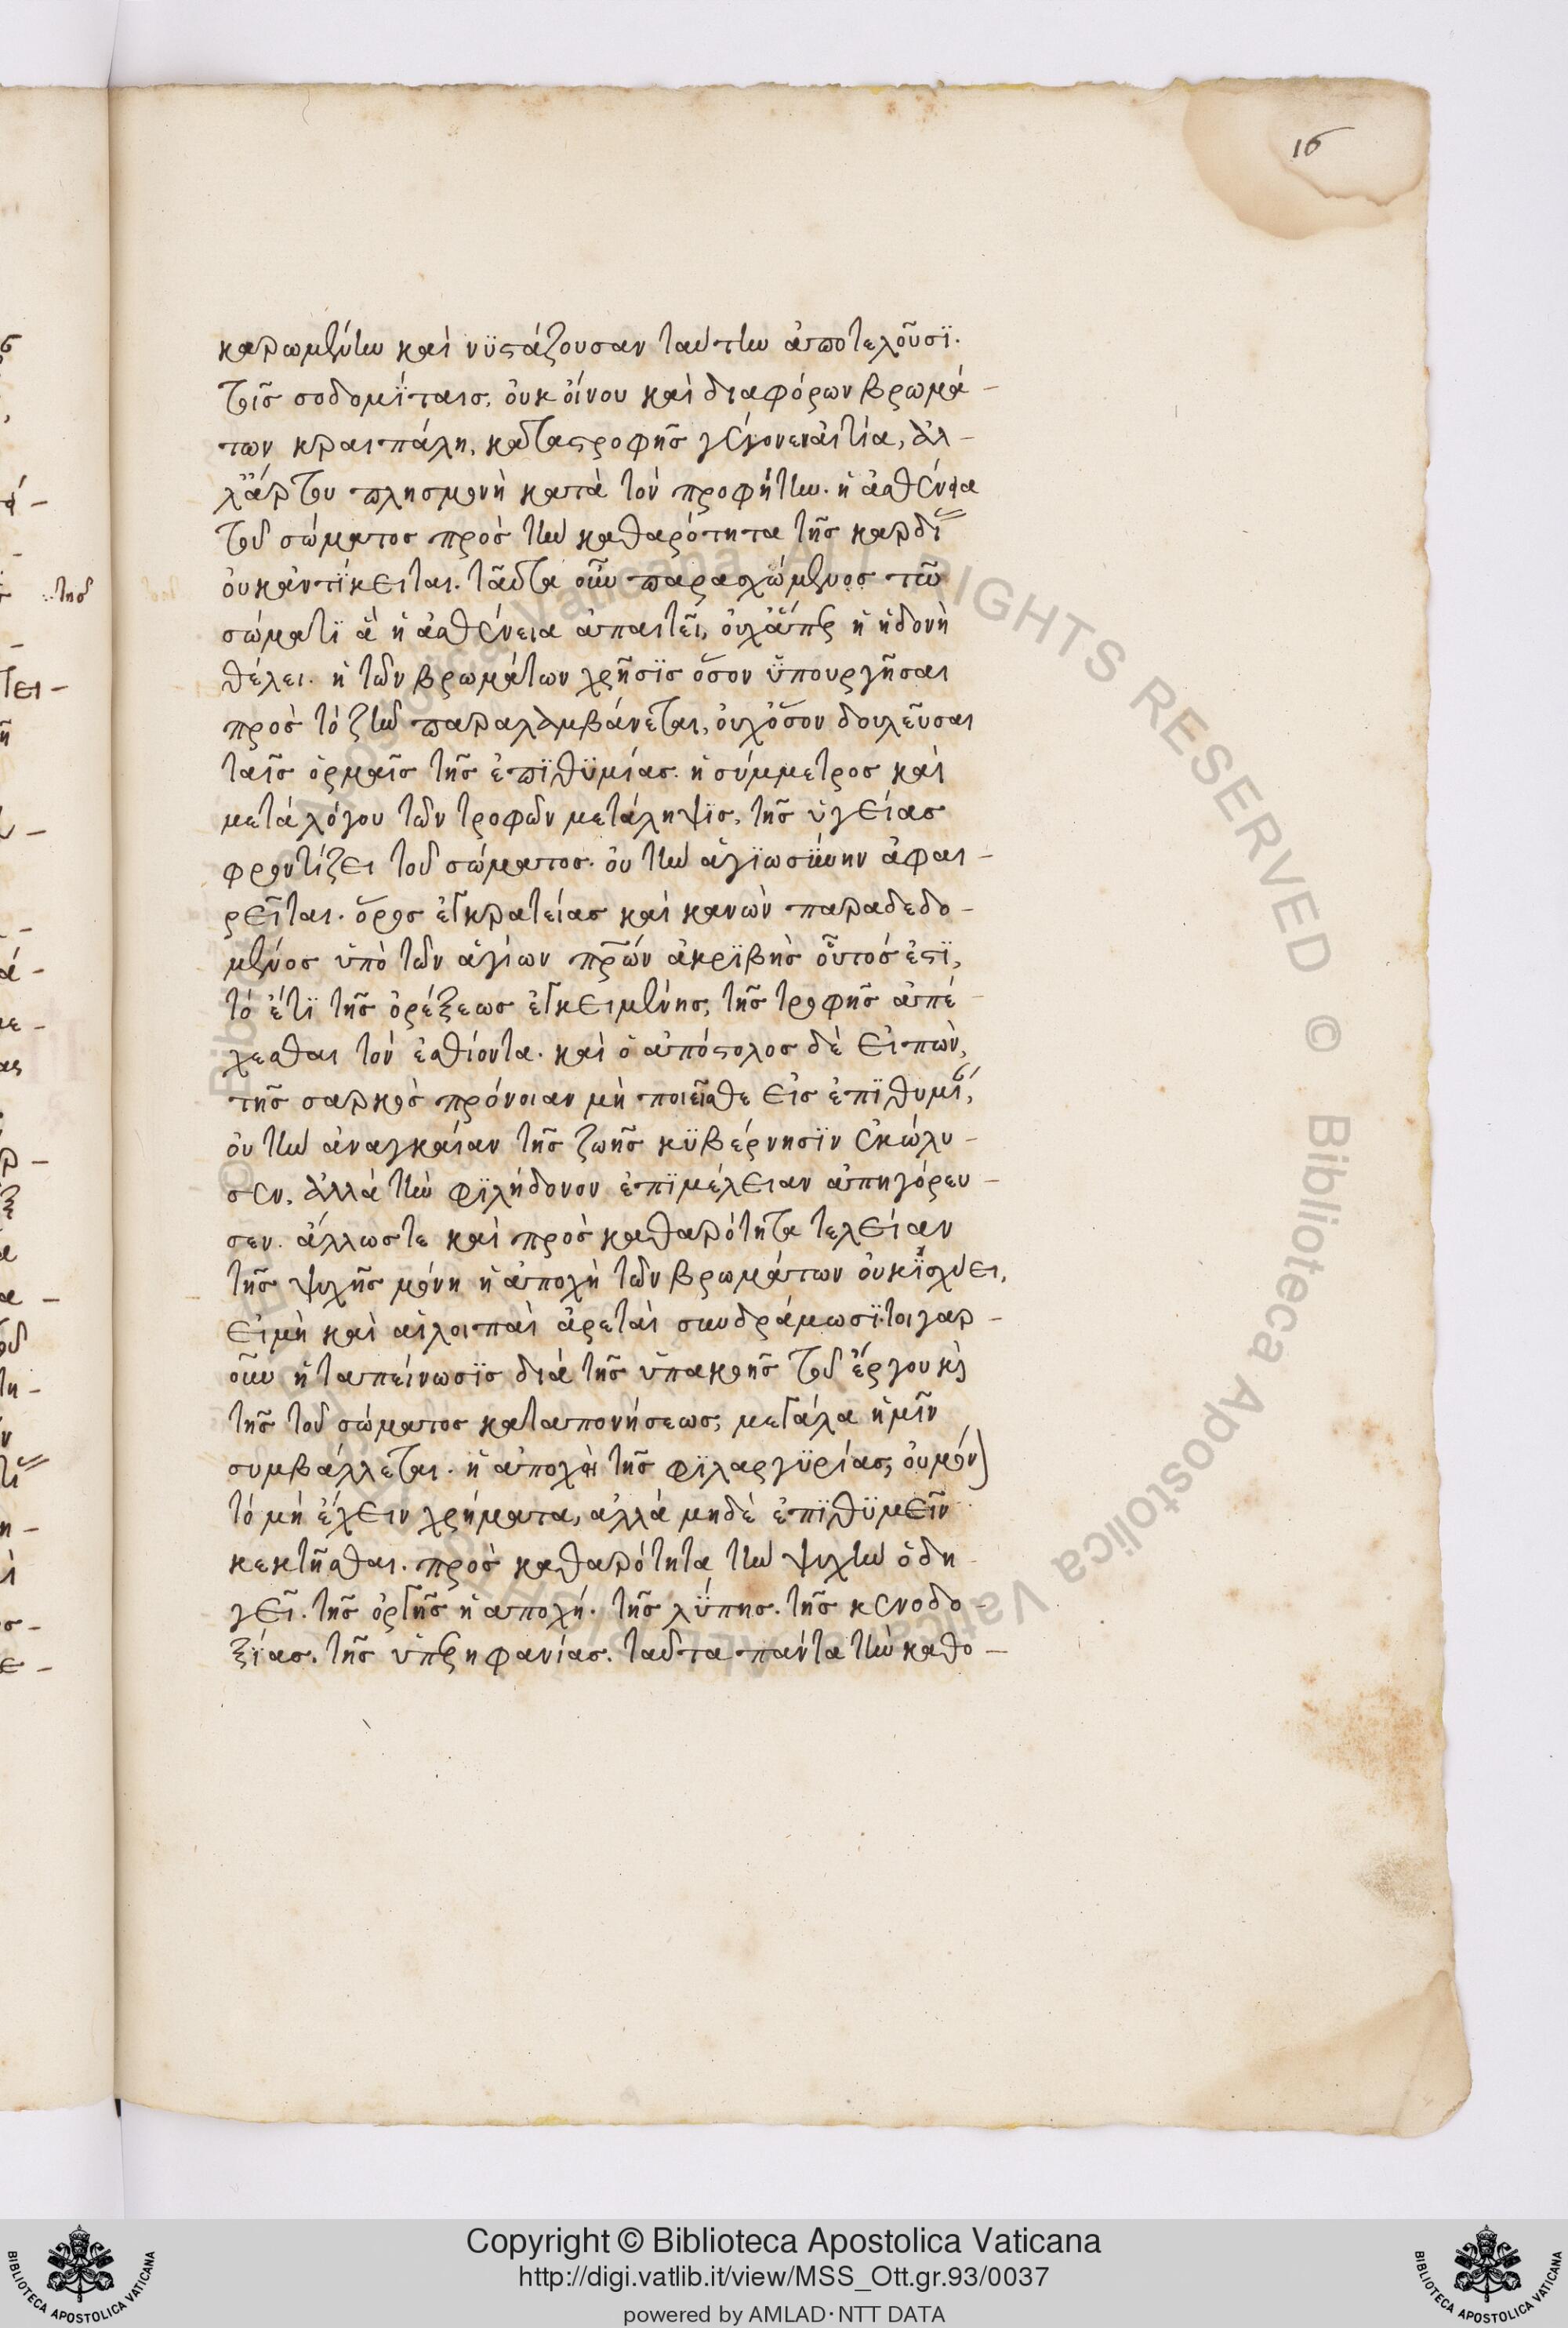 16
καρωμένην καὶ νϋστάζουσαν ταύτην ἀποτελοῦσϊ.
τοῖς σοδομΐταις, οὐκ οἴνου καὶ διαφόρων βρωμά-
των κραιπάλη, καταστροφῆς γέγονεν αἰτία, ἀλ-
λ' ἄρτου πλησμονὴ κατὰ τὸν προφήτην. ἡ ἀσθένεια
τοῦ σώματος πρὸς τὴν καθαρότητα τῆς καρδί
οὐκ ἀντίκειται. ταῦτα οὖν παρασχώμενος τῶ
σώματϊ ἃ ἡ ἀσθένεια ἀπαιτεῖ, οὐχ ἅπερ ἡ ἡδονὴ
θέλει. ἡ τῶν βρωμάτων χρῆσϊς ὅσον ὑπουργῆσαι
πρὸς τὸ ζῆν παραλαμβάνεται, οὐχ ὅσον δουλεῦσαι
ταῖς ὁρμαῖς τῆς ἐπϊθϋμίας. ἡ σύμμετρος καὶ
μετὰ λόγου τῶν τροφῶν μετάληψϊς, τῆς ὑγείας
φροντίζει τοῦ σώματος. οὐ τὴν ἁγϊωσύνην ἀφαι-
ρεῖται. ὅρος ἐγκρατείας καὶ κανὼν παραδεδο-
μένος ὑπὸ τῶν ἁγίων πρων ἀκρϊβὴς οὗτος ἐστϊ,
τὸ ἔτϊ τῆς ὀρέξεως ἐγκειμένης, τῆς τροφῆς ἀπέ-
χεσθαι τὸν ἐσθίοντα. καὶ ὁ ἀπόστολος δὲ εἰπὼν,
τῆς σαρκὸς πρόνοιαν μὴ ποιεῖσθε εἰς ἐπϊθυμί,
οὐ τὴν ἀναγκαίαν τῆς ζωῆς κϋβέρνησϊν ἐκώλυ-
σεν, ἀλλὰ τὴν φϊλήδονον ἐπϊμέλειαν ἀπηγόρευ-
σεν. ἄλλωστε καὶ πρὸς καθαρότητα τελείαν
τῆς ψυχῆς μόνη ἡ ἀποχὴ τῶν βρωμάτων οὐκ ἰσχύει,
εἰμὴ καὶ αἱ λοιπαὶ ἀρεταὶ συνδράμωσϊ. τοιγαρ-
οῦν ἡ ταπείνωσϊς διὰ τῆς ὑπακοῆς τοῦ ἔργου κ(αὶ)
τῆς τοῦ σώματος καταπονήσεως, μεγάλα ἡμῖν
συμβάλλεται. ἡ ἀποχὴ τῆς φϊλαργϋρίας, οὐ μόν)
τὸ μὴ ἔχειν χρήματα, ἀλλὰ μηδὲ ἐπϊθϋμεῖν
κεκτῆσθαι. πρὸς καθαρότητα τὴν ψυχὴν ὁδη-
γεῖ. τῆς ὀργῆς ἡ ἀποχή. τῆς λύπης. τῆς κενοδο-
ξίας. τῆς ὑπερηφανίας. ταῦτα πάντα τὴν καθο-
Copyright © Biblioteca Apostolica Vaticana
http://digi.vatlib.it/view/MSS_Ott.gr.93/0037
powered by AMLAD·NTT DATA